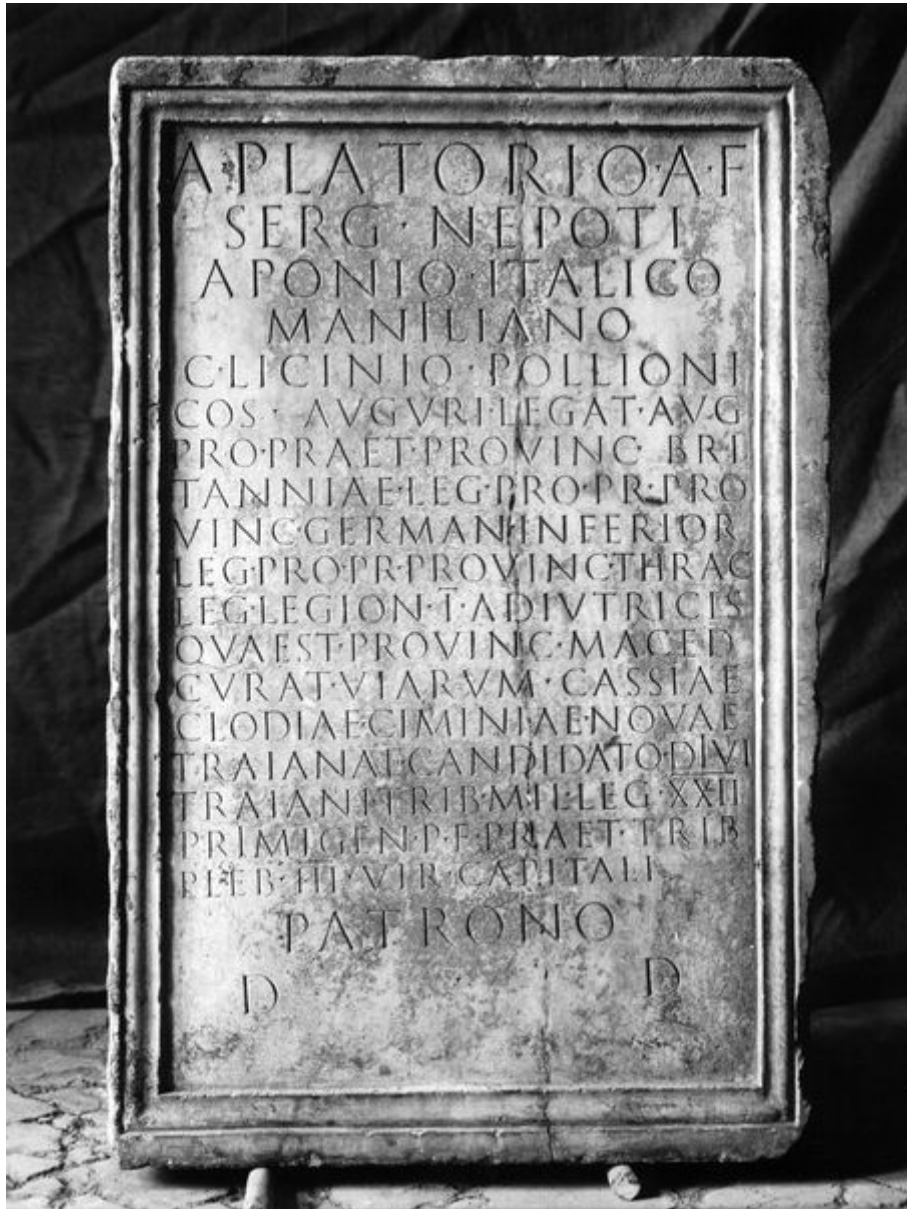 A PLATORIO·A·F
SERG·NEPOTI
APONIO·ITALICO
MANILIANO
C·LICINIO·POLLIONI
COS·AVGVRI·LEGAT·AVG
PRO·PRAET·PROVINC·BRI
TANNIAE·LEG·PRO·PR·PRO
VINC·GERMAN·INFERIOR
LEG·PRO·PR·PROVINC·THRAC
LEG·LEGION·I·ADIVTRICIS
QVAEST·PROVINC·MACED
CVRAT·VIARVM·CASSIAE
CLODIAE·CIMINIAE·NOVAE
TRAIANAE·CANDIDATO·DIVI
TRAIANI·TRIB·MIL·LEG·XXII
PRIMIGEN·P·F·PRAET·TRIB
PLEB·III·VIR·CAPITALI
PATRONO
D D